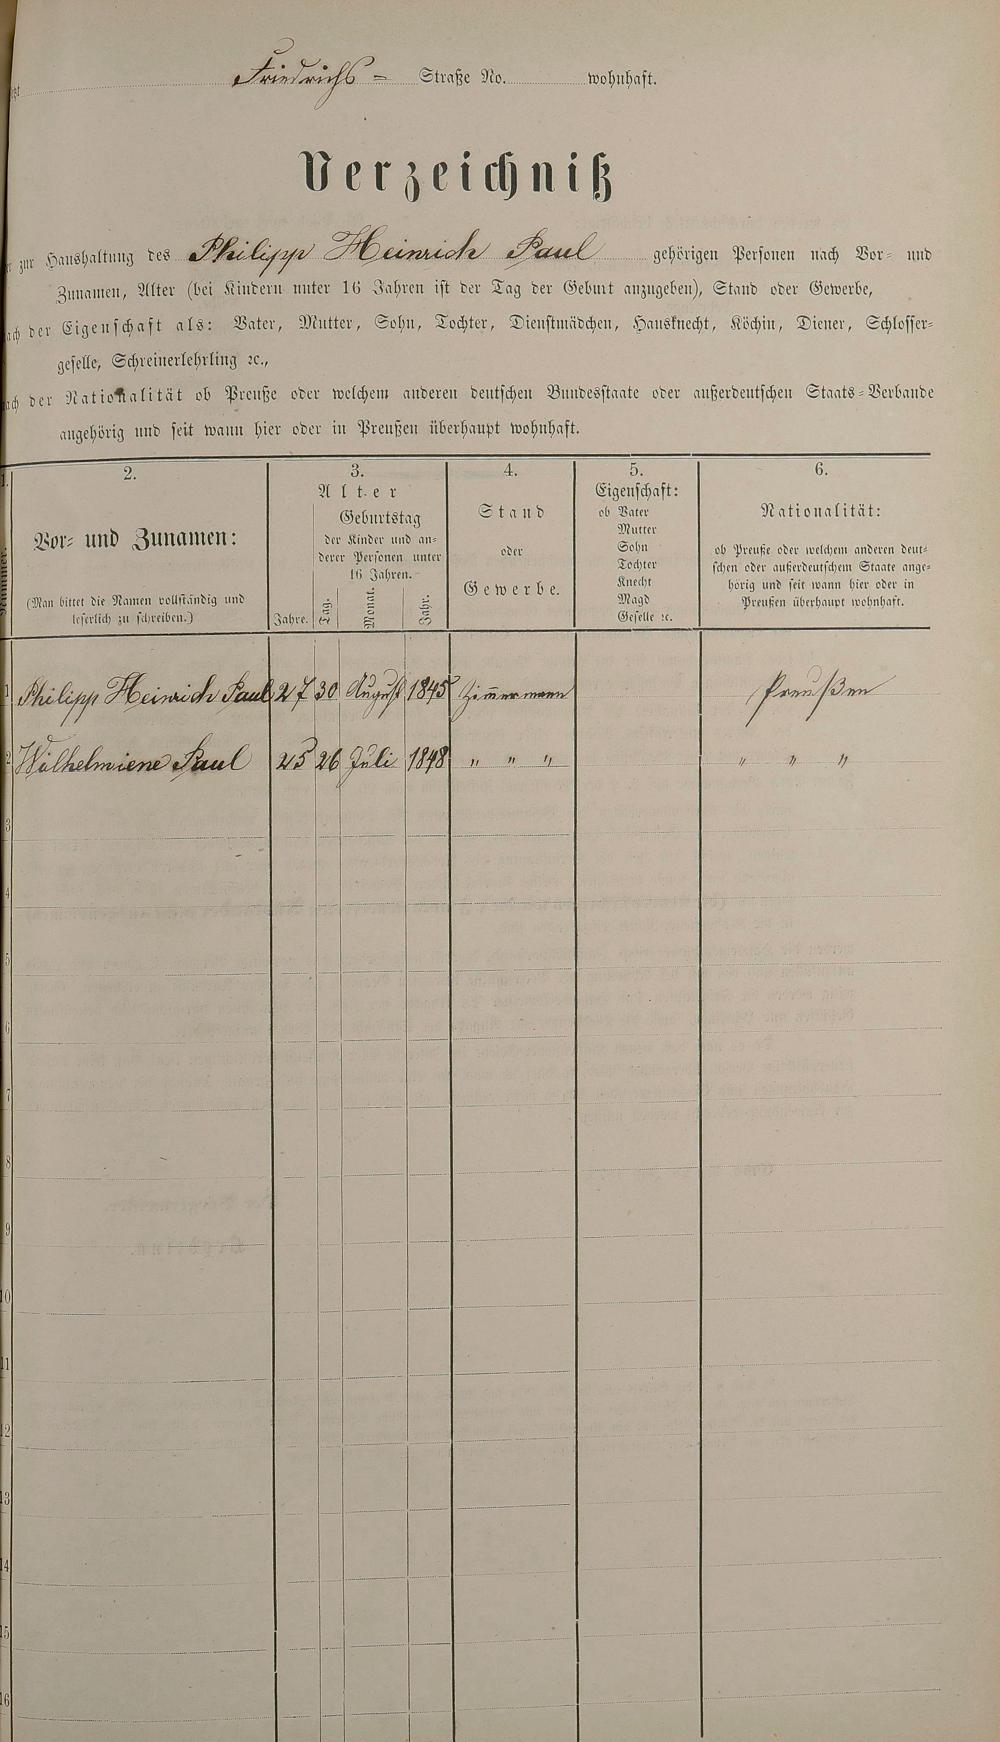 Friedrichs= Straße No. wohnhaft.
Verzeichniß
zur Haushaltung des Philipp Heinrich Paul gehörigen Personen nach Vor- und
Zunamen, Alter (bei Kindern unter 16 Jahren ist der Tag der Geburt anzugeben), Stand oder Gewerbe,
der Eigenschaft als: Vater, Mutter, Sohn, Tochter, Dienstmädchen, Hausknecht, Köchin, Diener, Schlosser-
geselle, Schreinerlehrling ꝛc.,
der Nationalität ob Preuße oder welchem anderen deutschen Bundesstaate oder außerdeutschen Staats-Verbande
angehörig und seit wann hier oder in Preußen überhaupt wohnhaft.
1. 2. 3. 4. 5. 6.
Nummer.
Vor- und Zunamen:
(Man bittet die Namen vollständig und
leserlich zu schreiben.)
Alter
Geburtstag
der Kinder und an-
derer Personen unter
16 Jahren.
Jahre. Tag. Monat. Jahr.
Stand
oder
Gewerbe.
Eigenschaft:
ob Vater
Mutter
Sohn
Tochter
Knecht
Magd
Geselle ꝛc.
Nationalität:
ob Preuße oder welchem anderen deut-
schen oder außerdeutschem Staate ange-
hörig und seit wann hier oder in
Preußen überhaupt wohnhaft.
1 Philipp Heinrich Paul 27 30 August 1845 Zimmermann Preußen
2 Wilhelmiene Paul 25 26 Juli 1848 " " " " " "
3
4
5
6
7
8
9
10
11
12
13
14
15
16